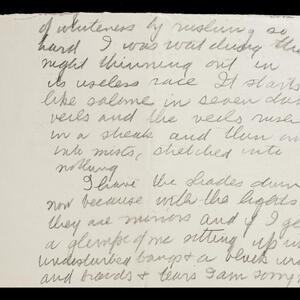 of whiteness by rushing so
hard I was watching the
night thinning out in
its useless race It starts
like salome in seven
veils and the veils
in a streak and then
into mists, stretched into
nothing
I have the shades down
now because with the lights
they are mirrors and if I
a glimpse of me sitting up in
undisturbed bangs & a black
and braids & tears I am